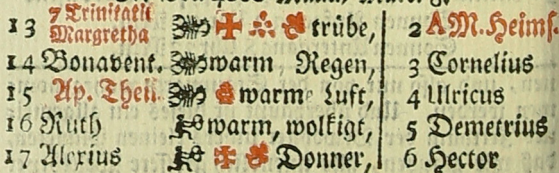 13 7 Trinitatis
Margretha trübe, 2 A M. Heims.
14 Bonavent. warm Regen, 3 Cornelius
15 Ap. Theil. warme Luft, 4 Ulricus
16 Ruth warm, wolkigt, 5 Demetrius
17 Alexius Donner, 6 Hector